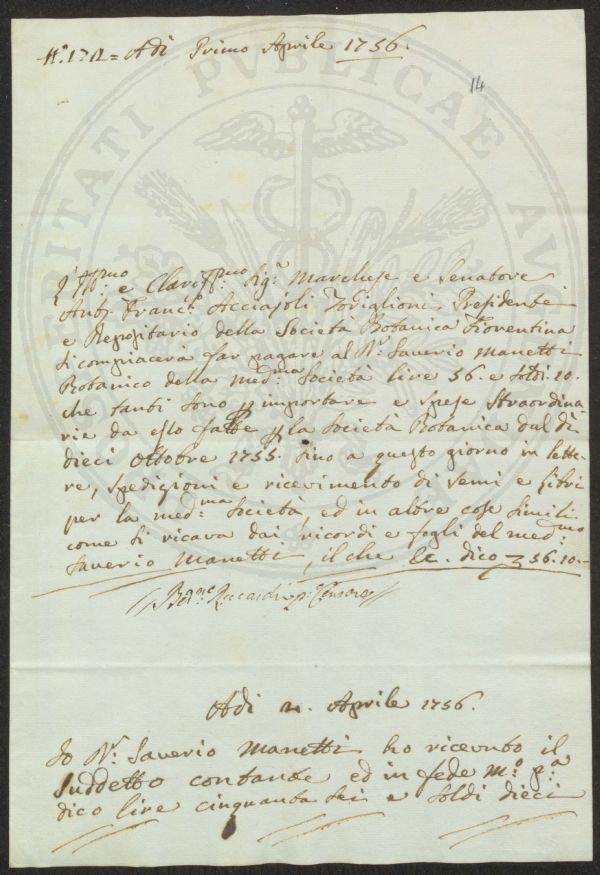 N.° 171 = Adì Primo Aprile 1756.
14
L'Ill.mo e Clariss.mo Sig.r Marchese e Senatore
Ant. Franc. Acciajoli Toriglioni, Presidente
e Depositario della Società Botanica Fiorentina
si compiacerà far pagare al D.r Saverio Manetti
Botanico della Med.ma Società lire 56. e soldi 10.
che tanti sono p importare e spese straordina
rie da esso fatte p la Società Botanica dal dì
dieci Ottobre 1755. sino a questo giorno in lette
re, spedizioni e ricevimento di semi e libri
per la med.ma Società, ed in altre cose simili
come si ricava dai ricordi e fogli del med.mo
Saverio Manetti, il che &c. dico 56.10.-
Riccardi p. Censore
SEVERITATI PVBLICAE AVC
Adì 2. Aprile 1756.
Io D.r Saverio Manetti ho ricevuto il
suddetto contante ed in fede M.o p.a
dico lire cinquanta sei e soldi dieci